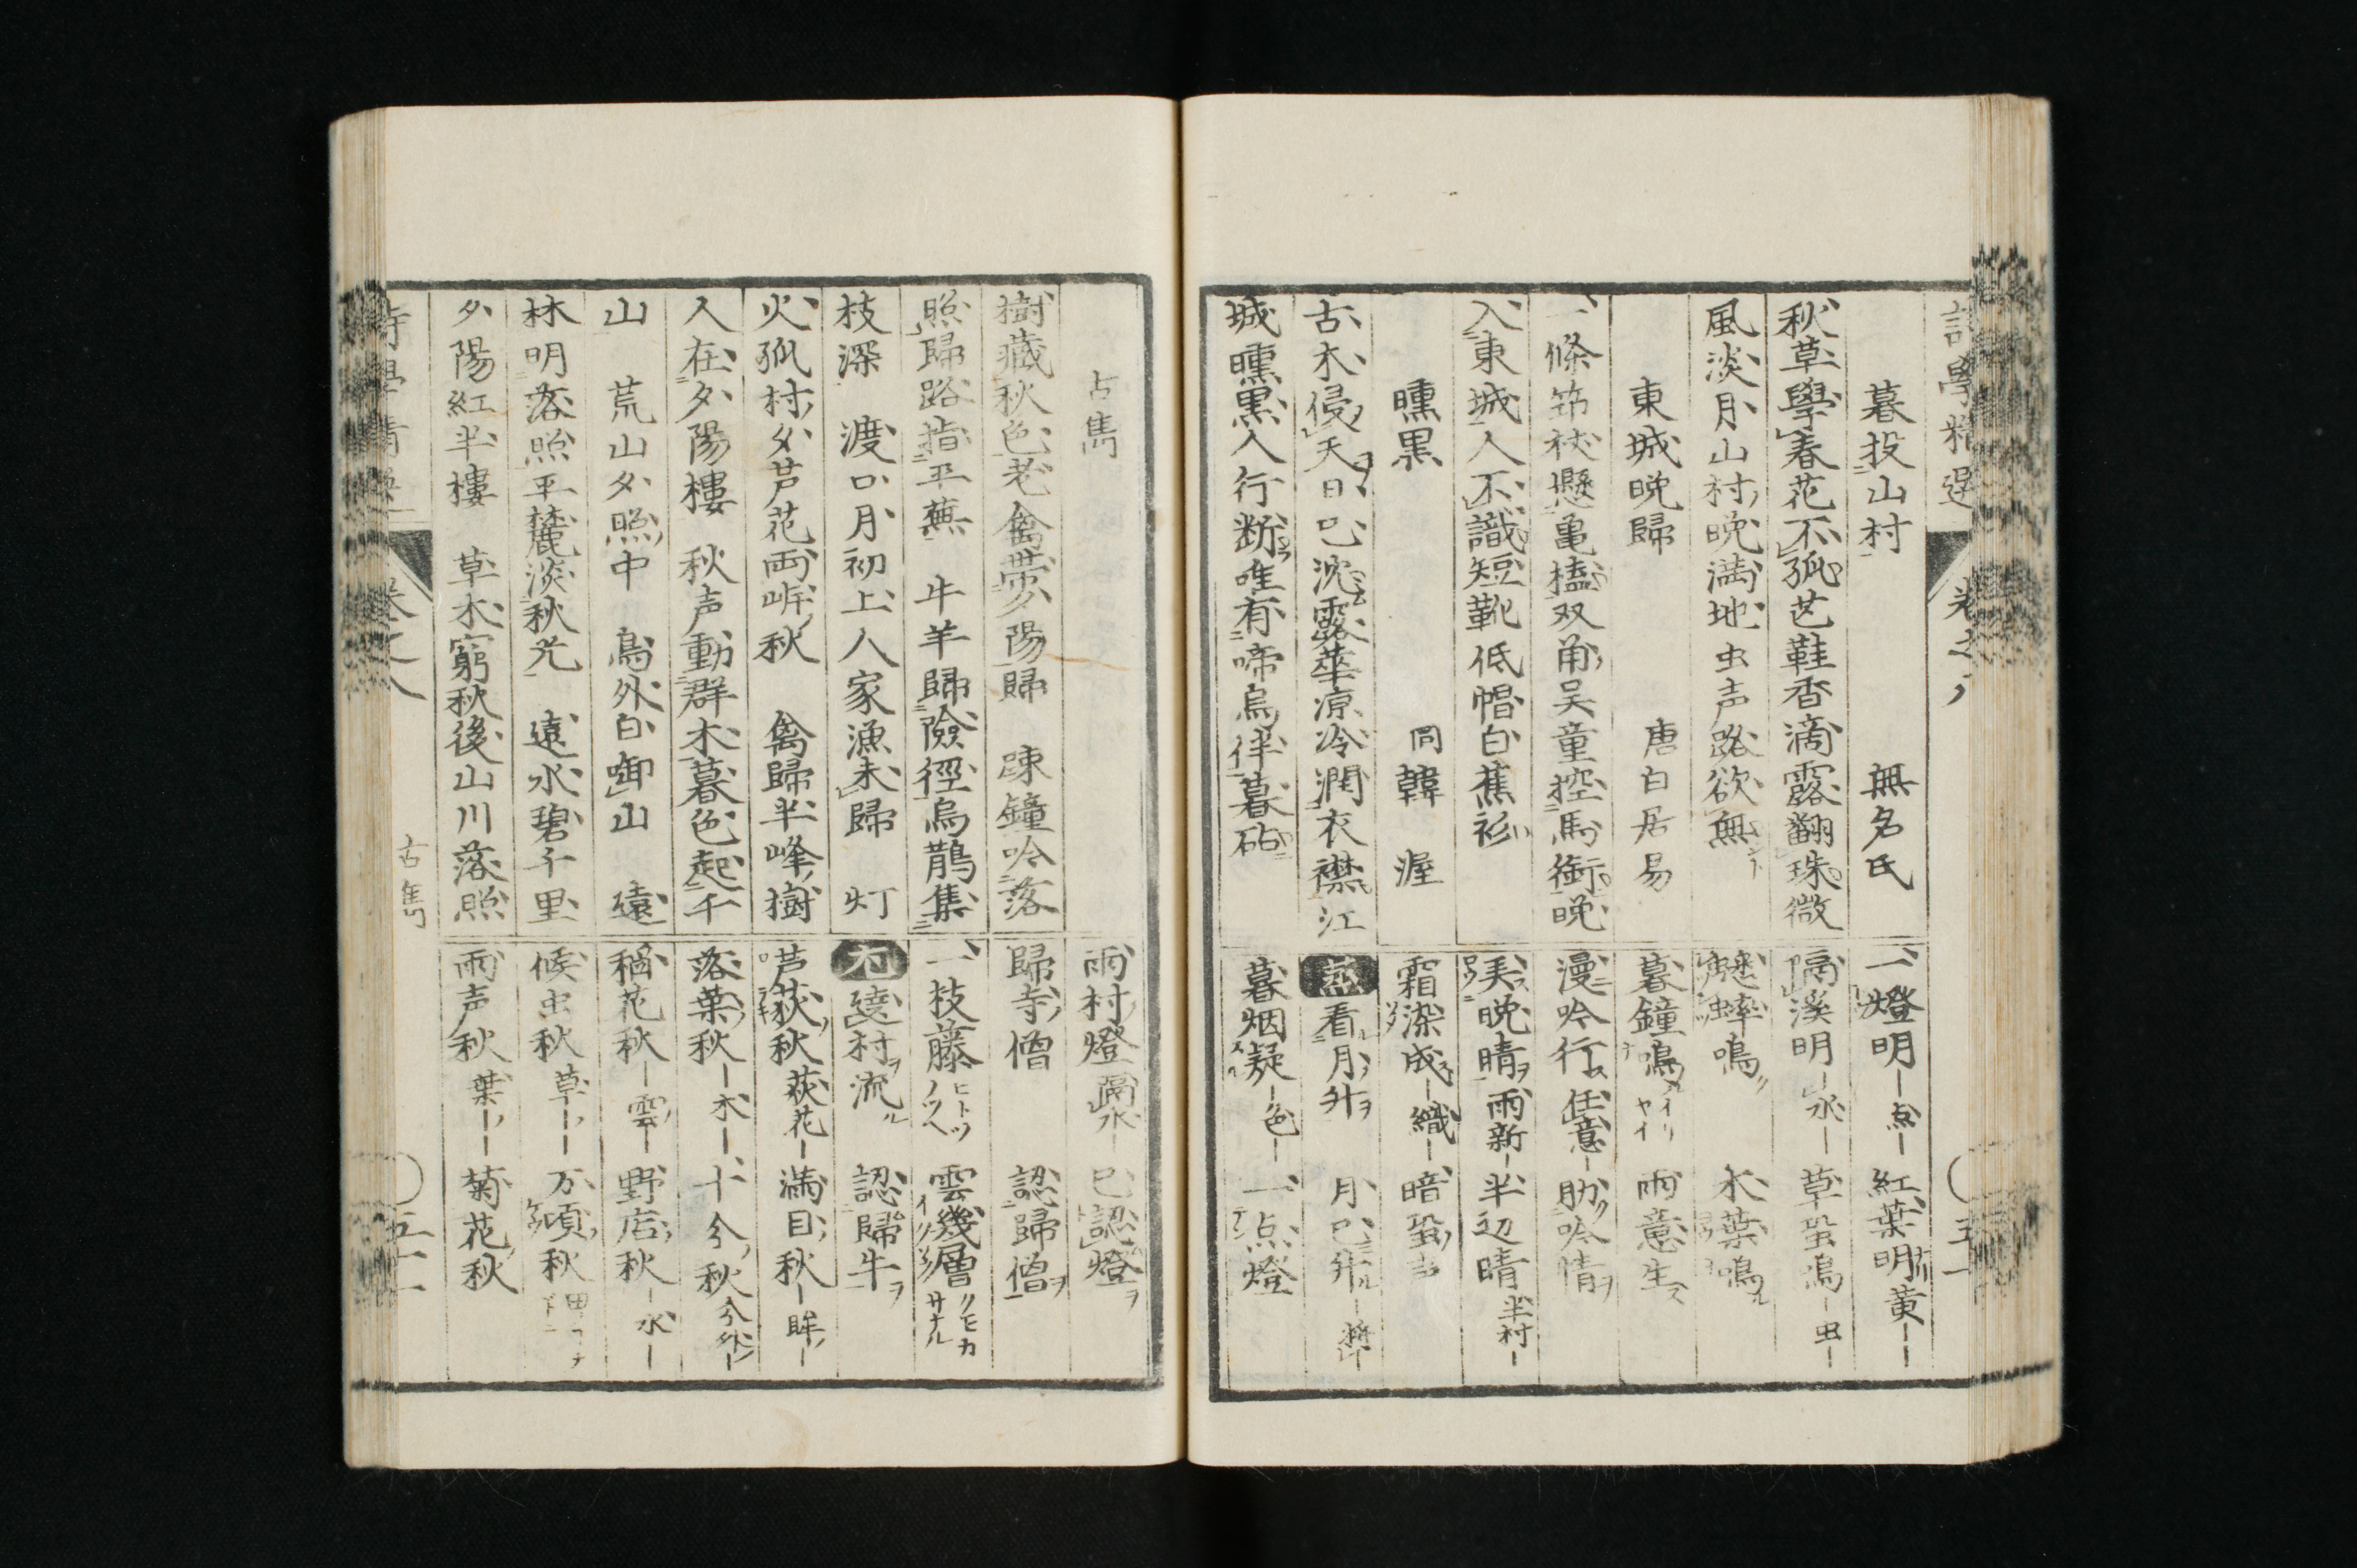 詩學精選 卷之八 五十一
暮投山村 無名氏
秋草學春花不孤芒鞋香滴露翻珠微
風淡月山村晩満地虫声路欲無
東城晩歸 唐白居易
一條筇杖懸亀榼双角吴童控馬銜晩
入東城人不識短靴低帽白蕉衫
曛黒 同韓渥
古木侵天日已沈露華凉冷潤衣襟江
城曛黒人行断唯有啼烏伴暮砧
一燈明ー点ー 紅葉明黄ーー
隔溪明ー水ー 草蛩鳴ー虫ー
蟋蟀鳴 木葉鳴
暮鐘鳴 雨意生
漫吟行任意ー 助吟情
美晩晴雨新ー 半辺晴半村ー
霜染成ー織ー 暗蛩
蒸 看月升 月已升ー将ー
暮烟凝ー色ー 一点燈
古雋
樹藏秋色老禽帶夕陽歸 疎鐘吟落
照歸路指平蕪 牛羊歸險徑烏鵲集
枝深 渡口月初上人家漁未歸 灯
火孤村夕芦花両岸秋 禽歸半峰樹
人在夕陽樓 秋声動群木暮色起千
山 荒山夕照中 鳥外白啣山 遠
林明落照平麓淡秋光 遠水碧千里
夕陽紅半樓 草木窮秋後山川落照
雨村燈隔水ー 已認燈
歸寺僧 認歸僧
一枝藤 雲幾層
尤 遶村流 認歸牛
芦荻秋荻花ー 満目秋ー眸ー
落葉秋ー木ー 十分秋分外ー
稲花秋ー雲ー 野店秋ー水ー
候虫秋草ーー 万頃秋
雨声秋葉ーー 菊花秋
卷之八 古雋 五十一